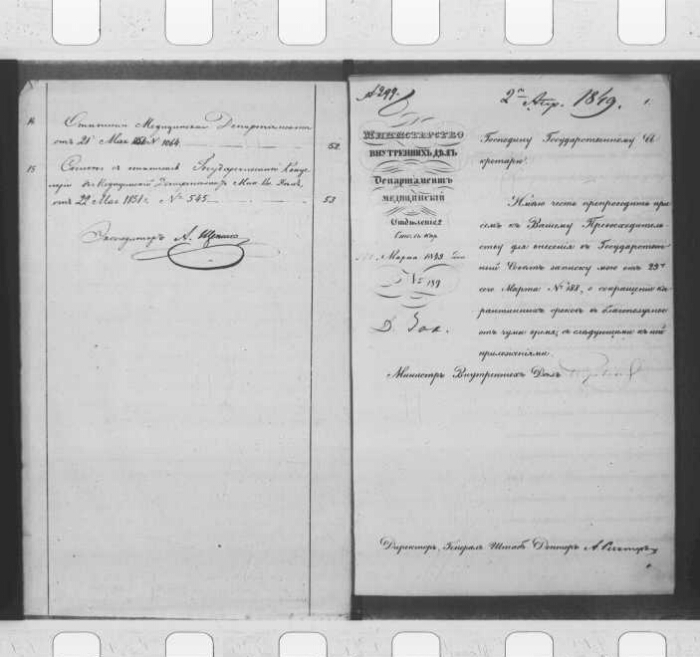 14
Отношение Медицинскаго Департамента
отъ 21 Мая 1851 № 1064.
52
15
Государственной Канце
лярiи въ Медицинскiй Департаментъ Мин. Вн. Дѣлъ,
отъ 22 Мая 1851 г. № 545
53
Экзекуторъ А.
№ 299.
2го Апр. 1849.
1.
МИНИСТЕРСТВО
ВНУТРЕННИХЪ ДѢЛЪ
Департаментъ
МЕДИЦИНСКIЙ
Отдѣленiе 2
Марта 1849
№ 189
Д. Зак.
Господину Государственному Се
кретарю.
Имѣю честь препроводить при
семъ къ Вашему Превосходитель
ству для внесенiя въ Государствен
ный Совѣтъ записку мою отъ 29го
сего Марта № 188, о сокращенiи ка
рантинныхъ сроковъ въ благополучное
отъ чумы время, съ слѣдующими къ ней
приложенiями.
Министръ Внутреннихъ Дѣлъ
Директоръ, Генералъ Штабъ Докторъ А.